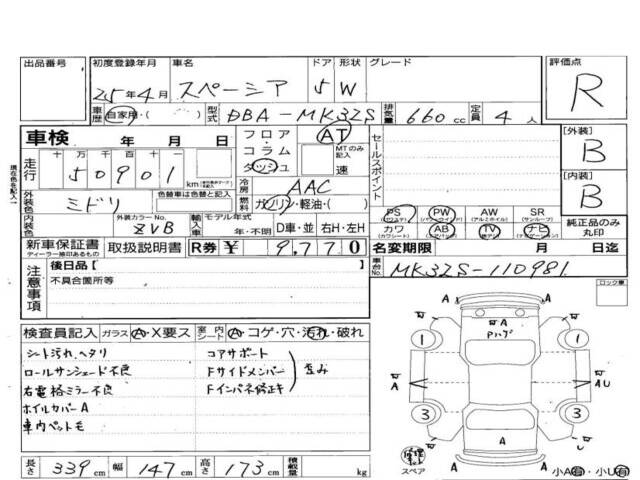 出品番号 初度登録年月 車名 ドア 形状 グレード 評価点
25年4月 スペーシア 5 W R
車歴 自家用・( ) 型式 DBA-MK32S 排気量 660 cc 定員 4 人
車検 年 月 日 フロア・コラム AT セールスポイント [外装] B
走行 十 万 千 百 十 一 ダッシュ MTのみ記入 速
50901 km
冷房 AAC [内装] B
外装色 ミドリ 色替車は色替と記入 燃料 ガソリン・軽油・( )
PS PW AW SR
(パワステ) (パワーウインド) (アルミホイル) (サンルーフ)
内装色 外装カラーNo. ZVB 輸入車 モデル年式 年・不明 D車・並 右H・左H
カワ AB TV ナビ 純正品のみ丸印
(カワシート) (エアバック)
新車保証書 取扱説明書 R券 ¥ 9,770 名変期限 月 日迄
ディーラー捺印あるもの
注意事項 後日品[ ] 車台No. MK32S-110981
不具合箇所等
ロック車
検査員記入 ガラス A・X要ス 室内シート A・コゲ・穴・汚れ・破れ
シート汚れ、ヘタリ コアサポート
ロールサンシェード不良 Fサイドメンバー 歪み
右電格ミラー不良 Fインパネ修正キ
ホイルカバーA
車内ペット毛
A Pハゲ
1 1
A A U
3 3
A
A
スペア
長さ 339 cm 幅 147 cm 高さ 173 cm 積載量 kg
小A有・小U有
現在色を記入